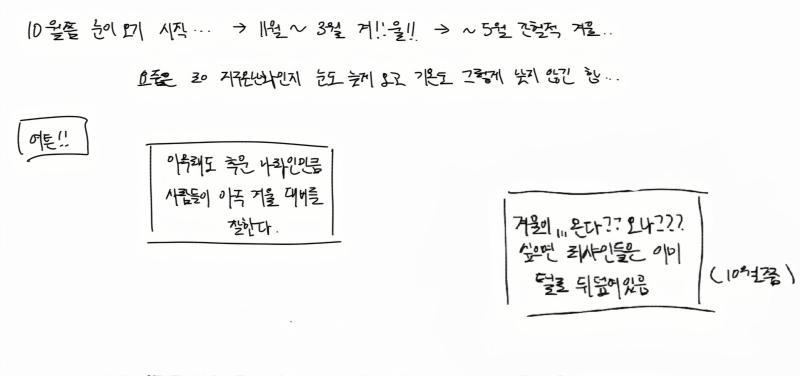 10월쯤 눈이 오기 시작... → 11월~3월 겨!!울!! → ~5월 간헐적 겨울..
요즘은 좀 지구온난화인지 눈도 늦게 오고 기온도 그렇게 낮지 않긴 함...
여튼!!
아무래도 추운 나라인만큼
사람들이 아주 겨울 대비를
잘한다.
겨울이... 온다?? 오나???
싶으면 러샤인들은 이미
털로 뒤덮여있음
(10월쯤)